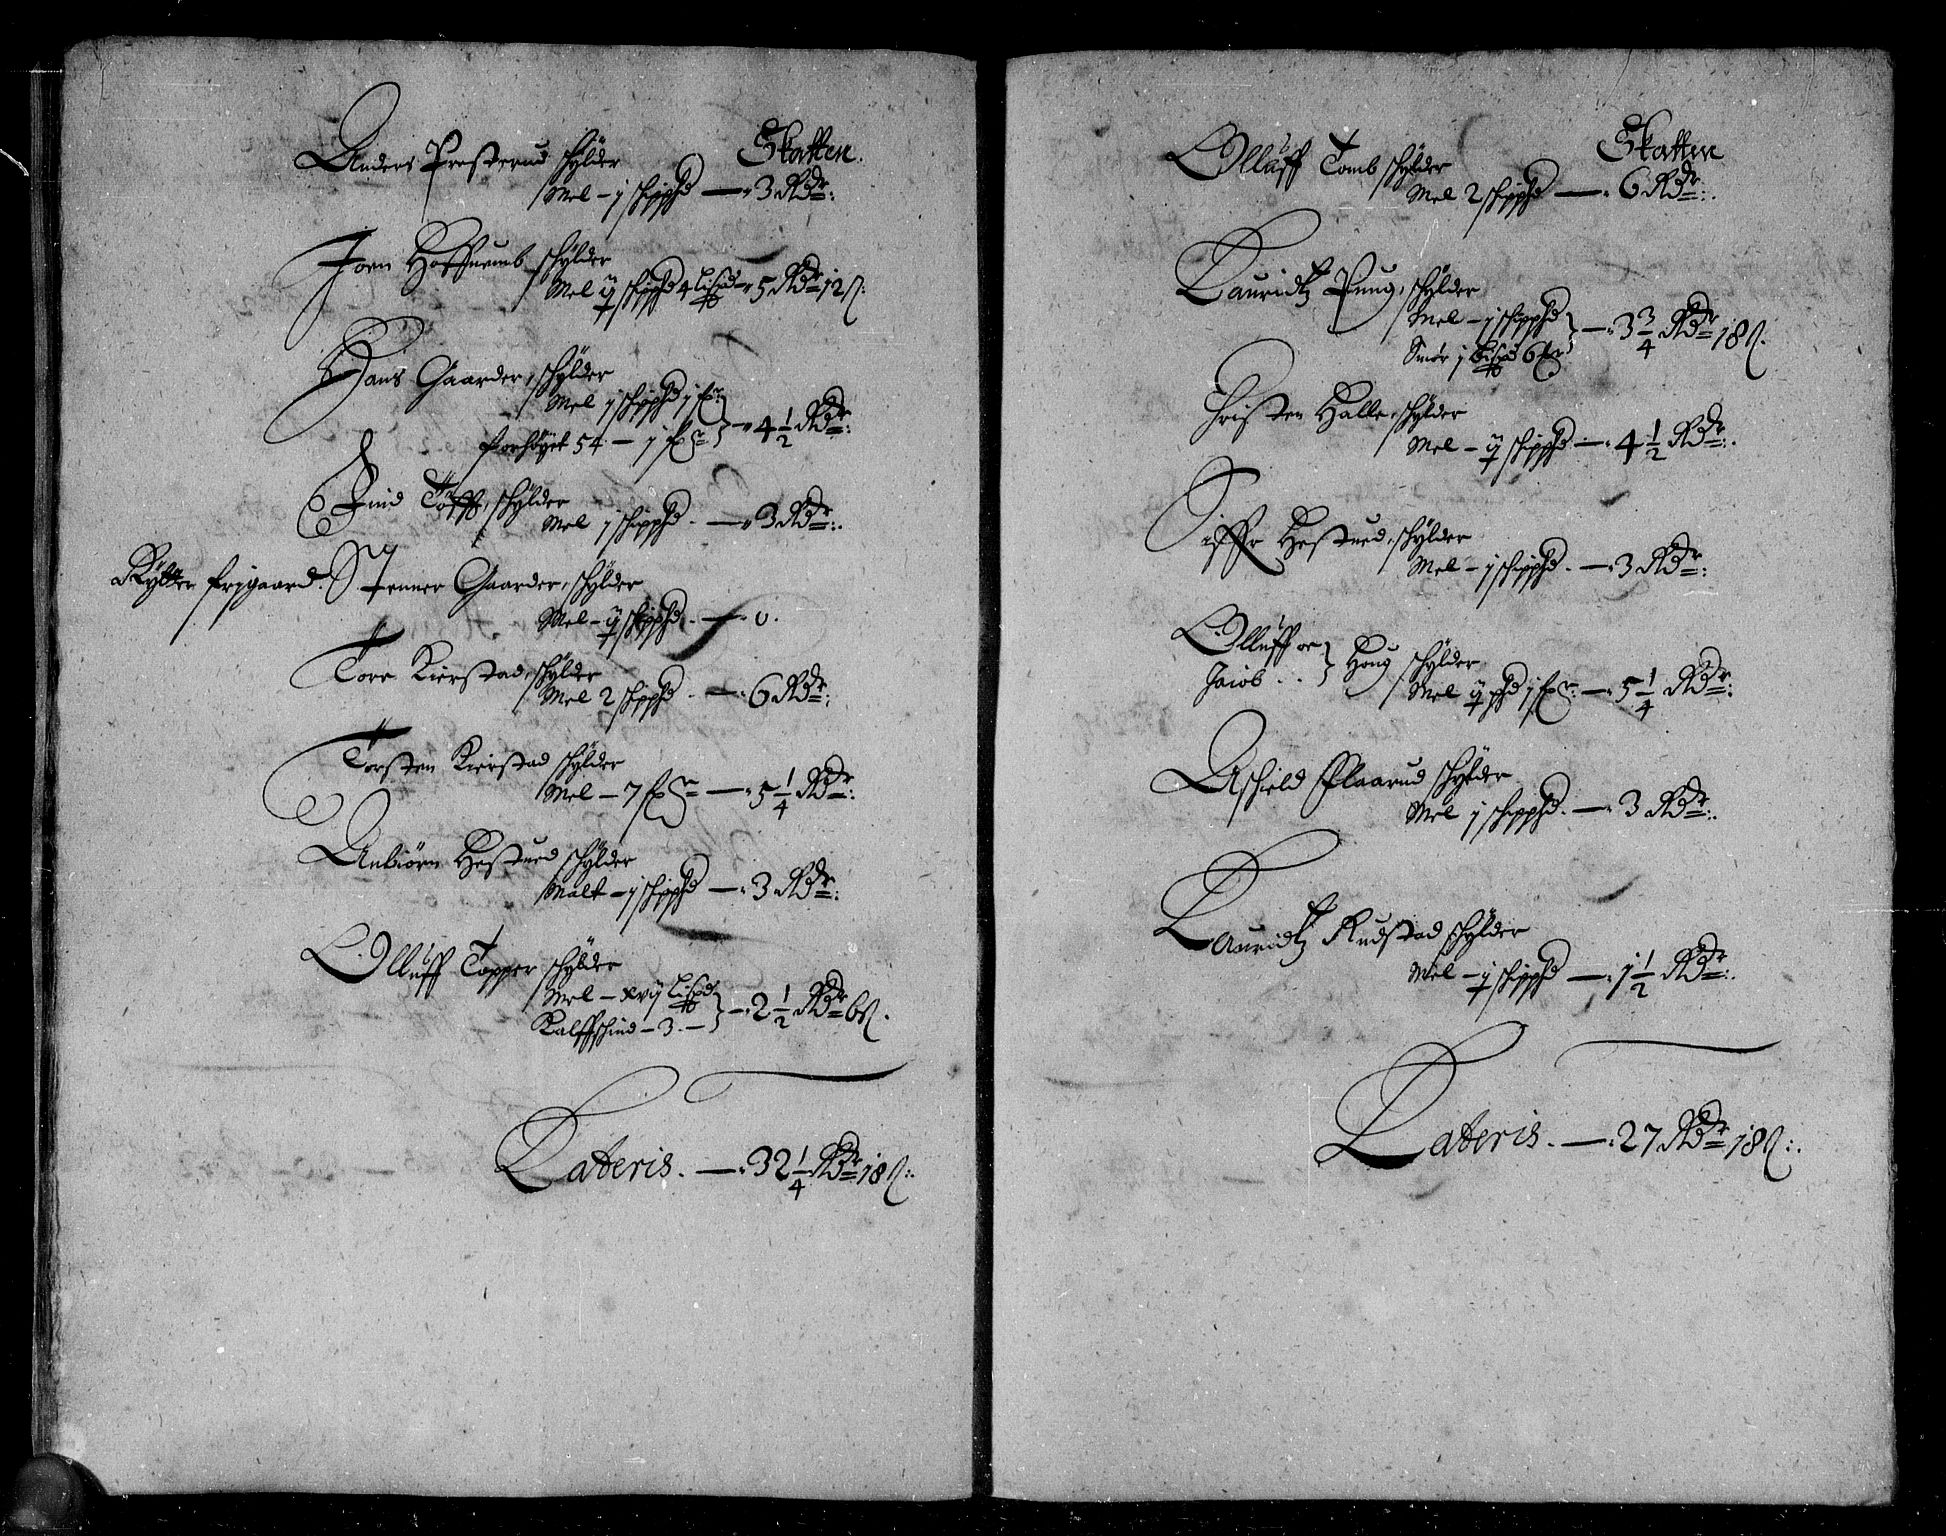 Skatten.
Anders Presterud schÿlder
Mel - j schippd — 3 Rdr:
Joen Hoffuemb schÿlder
Mel ij schippd 4 Lispd — 5 Rdr 12 s:
Hans Gaarder, schÿlder
Mel j schippd j
forhöyet 54 — j — 4 1/2 Rdr:
Eiuid Töfft, schÿlder
Mel j schippd. — 3 Rdr:
Rÿtter frigaard. Stenner Gaarder, schÿlder
Mel - ij schippd. — 0.
Tore Kierstad, schÿlder
Mel 2 schippd. — 6 Rdr:
Torsten Kierstad schÿlder
Mel — 7 — 5 1/4 Rdr:
Anbiörn Hestued schÿlder
Malt — j schippd — 3 Rdr:
Olluff Topper schÿlder
Mel — xvij Lispd
Kalffschind — 3. — 2 1/2 Rdr 6 s.
Lateris. — 32 1/4 Rdr 18 s:
Skatten
Olluff Tomb schÿlder
Mel 2 schippd — 6 Rdr:
Lauridtz Puug, schÿlder
Mel — j schippd
Smör j Lispd 6 — 3 3/4 Rdr 18 s.
Christen Halle, schÿlder
Mel — ij schippd — 4 1/2 Rdr:
Siffr Hestued, schÿlder
Mel — j schippd. — 3 Rdr:
Olluff oc
Jacob . . Houg schÿlder
Mel ij phd j — 5 1/4 Rdr:
Aschield Plaarud schÿlder
Mel j schippd. — 3 Rdr:
Lauridtz Rudstad schÿlder
Mel — j schippd — 1 1/2 Rdr:
Lateris. — 27 Rdr 18 s: